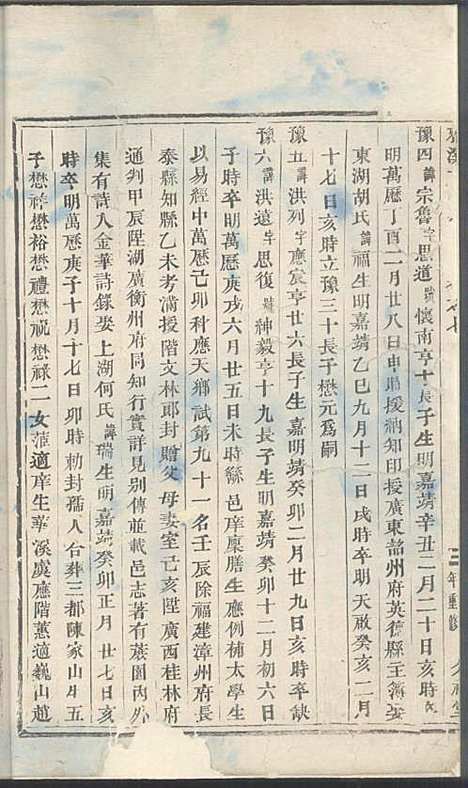 豫四諱宗魯字思道號懷南亨十長子生明嘉靖辛丑二月二十日亥時
明萬歷丁酉二月廿八日申時援納知印授廣東韶州府英德縣主簿娶
東湖胡氏諱福生明嘉靖乙巳九月十二日戌時卒明天啟癸亥二月
十七日亥時立豫三十長子懋元為嗣
豫五諱洪列字應宸亨廿六長子生嘉明靖癸卯二月廿九日亥時卒缺
豫六諱洪遠字思復號紳毅亨十九長子生明嘉靖癸卯二月初六日
子時卒明萬歷庚戌六月廿五日未時繇邑庠廩膳生應例補太學生
以易經中萬歷己卯科應天鄉試第九十一名壬辰除福建漳州府長
泰縣知縣乙未考滿援階文林郎封贈父母妻室己亥陞廣西桂林府
通判甲辰陞湖廣衡州府同知行實詳見別傳並載邑志著有蔗園內外
集有詩入金華詩錄娶上湖何氏諱瑞生明嘉靖癸卯正月廿七日亥
時卒明萬歷庚子十月十七日卯時勅封孺人合葬三都陳家山生五
子懋祥懋裕懋禮懋祝懋祿二女萍適庠生華溪虞應階蕙適巍山趙
年重修